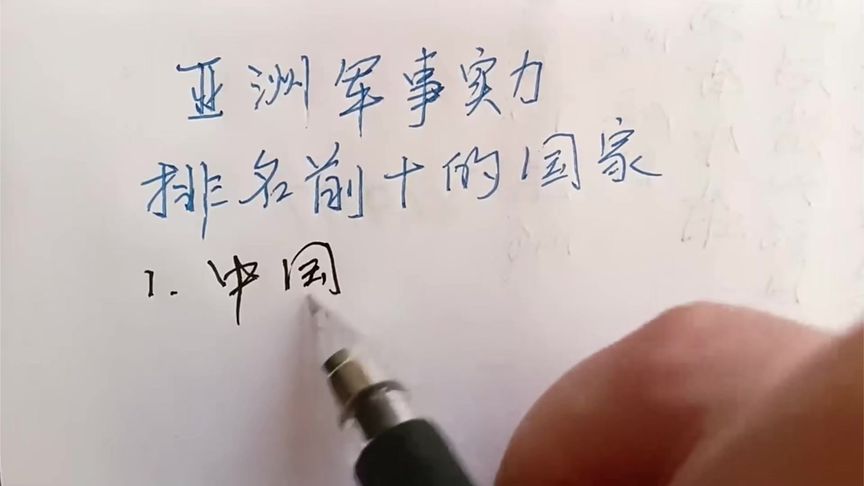 亚洲军事实力
排名前十的国家
1. 中国